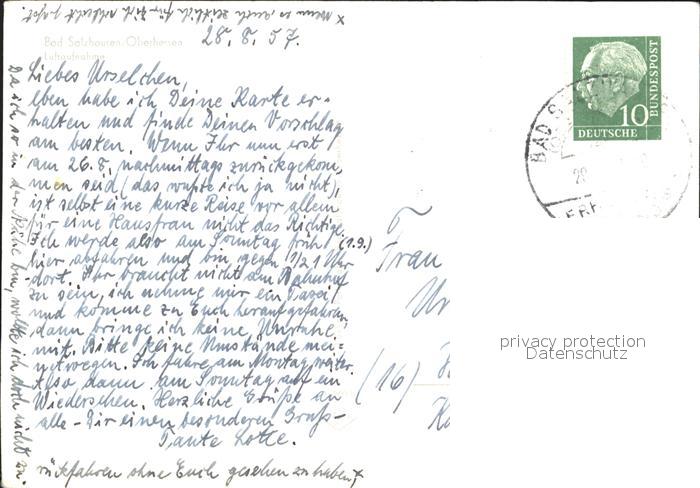 x Wenn es auch zeitlich für Dich schlecht paßt.
28.8.57.
Bad Salzhausen-Oberhessen
Luftaufnahme
Liebes Urselchen,
eben habe ich Deine Karte er-
halten und finde Deinen Vorschlag
am besten. Wenn Ihr nun erst
am 26.8. nachmittags zurückgekom-
men seid (das wußte ich ja nicht),
ist selbst eine kurze Reise vor allem
für eine Hausfrau nicht das Richtige.
Ich werde also am Sonntag früh (1.9.)
hier abfahren und bin gegen 1/2 1 Uhr
dort. Ihr braucht nicht am Bahnhof
zu sein, ich nehme mir ein Taxi
und komme zu Euch heraufgefahren,
dann bringe ich keine Unruhe
mit. Bitte keine Umstände mei-
netwegen. Ich fahre am Montag weiter.
Also dann am Sonntag auf ein
Wiedersehen. Herzliche Grüße an
alle - Dir einen besonderen Gruß -
Tante Lotte.
Da ich so in der Nähe bin, wollte ich doch nicht zu-
rückfahren ohne Euch gesehen zu haben, x
Frau
(16)
10
DEUTSCHE
BUNDESPOST
BAD S
28
privacy protection
Datenschutz